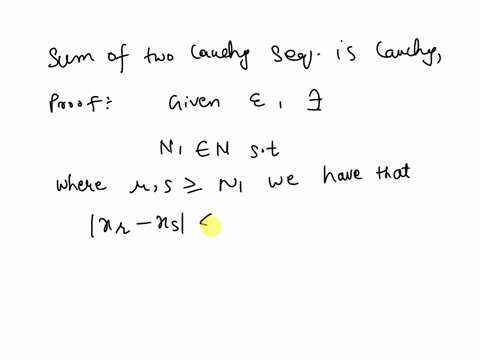 Sum of two Cauchy seq. is Cauchy,
Proof: Given ε, ∃
N₁ ∈ N s.t
where r, s ≥ N₁ we have that
|xᵣ - xₛ| <